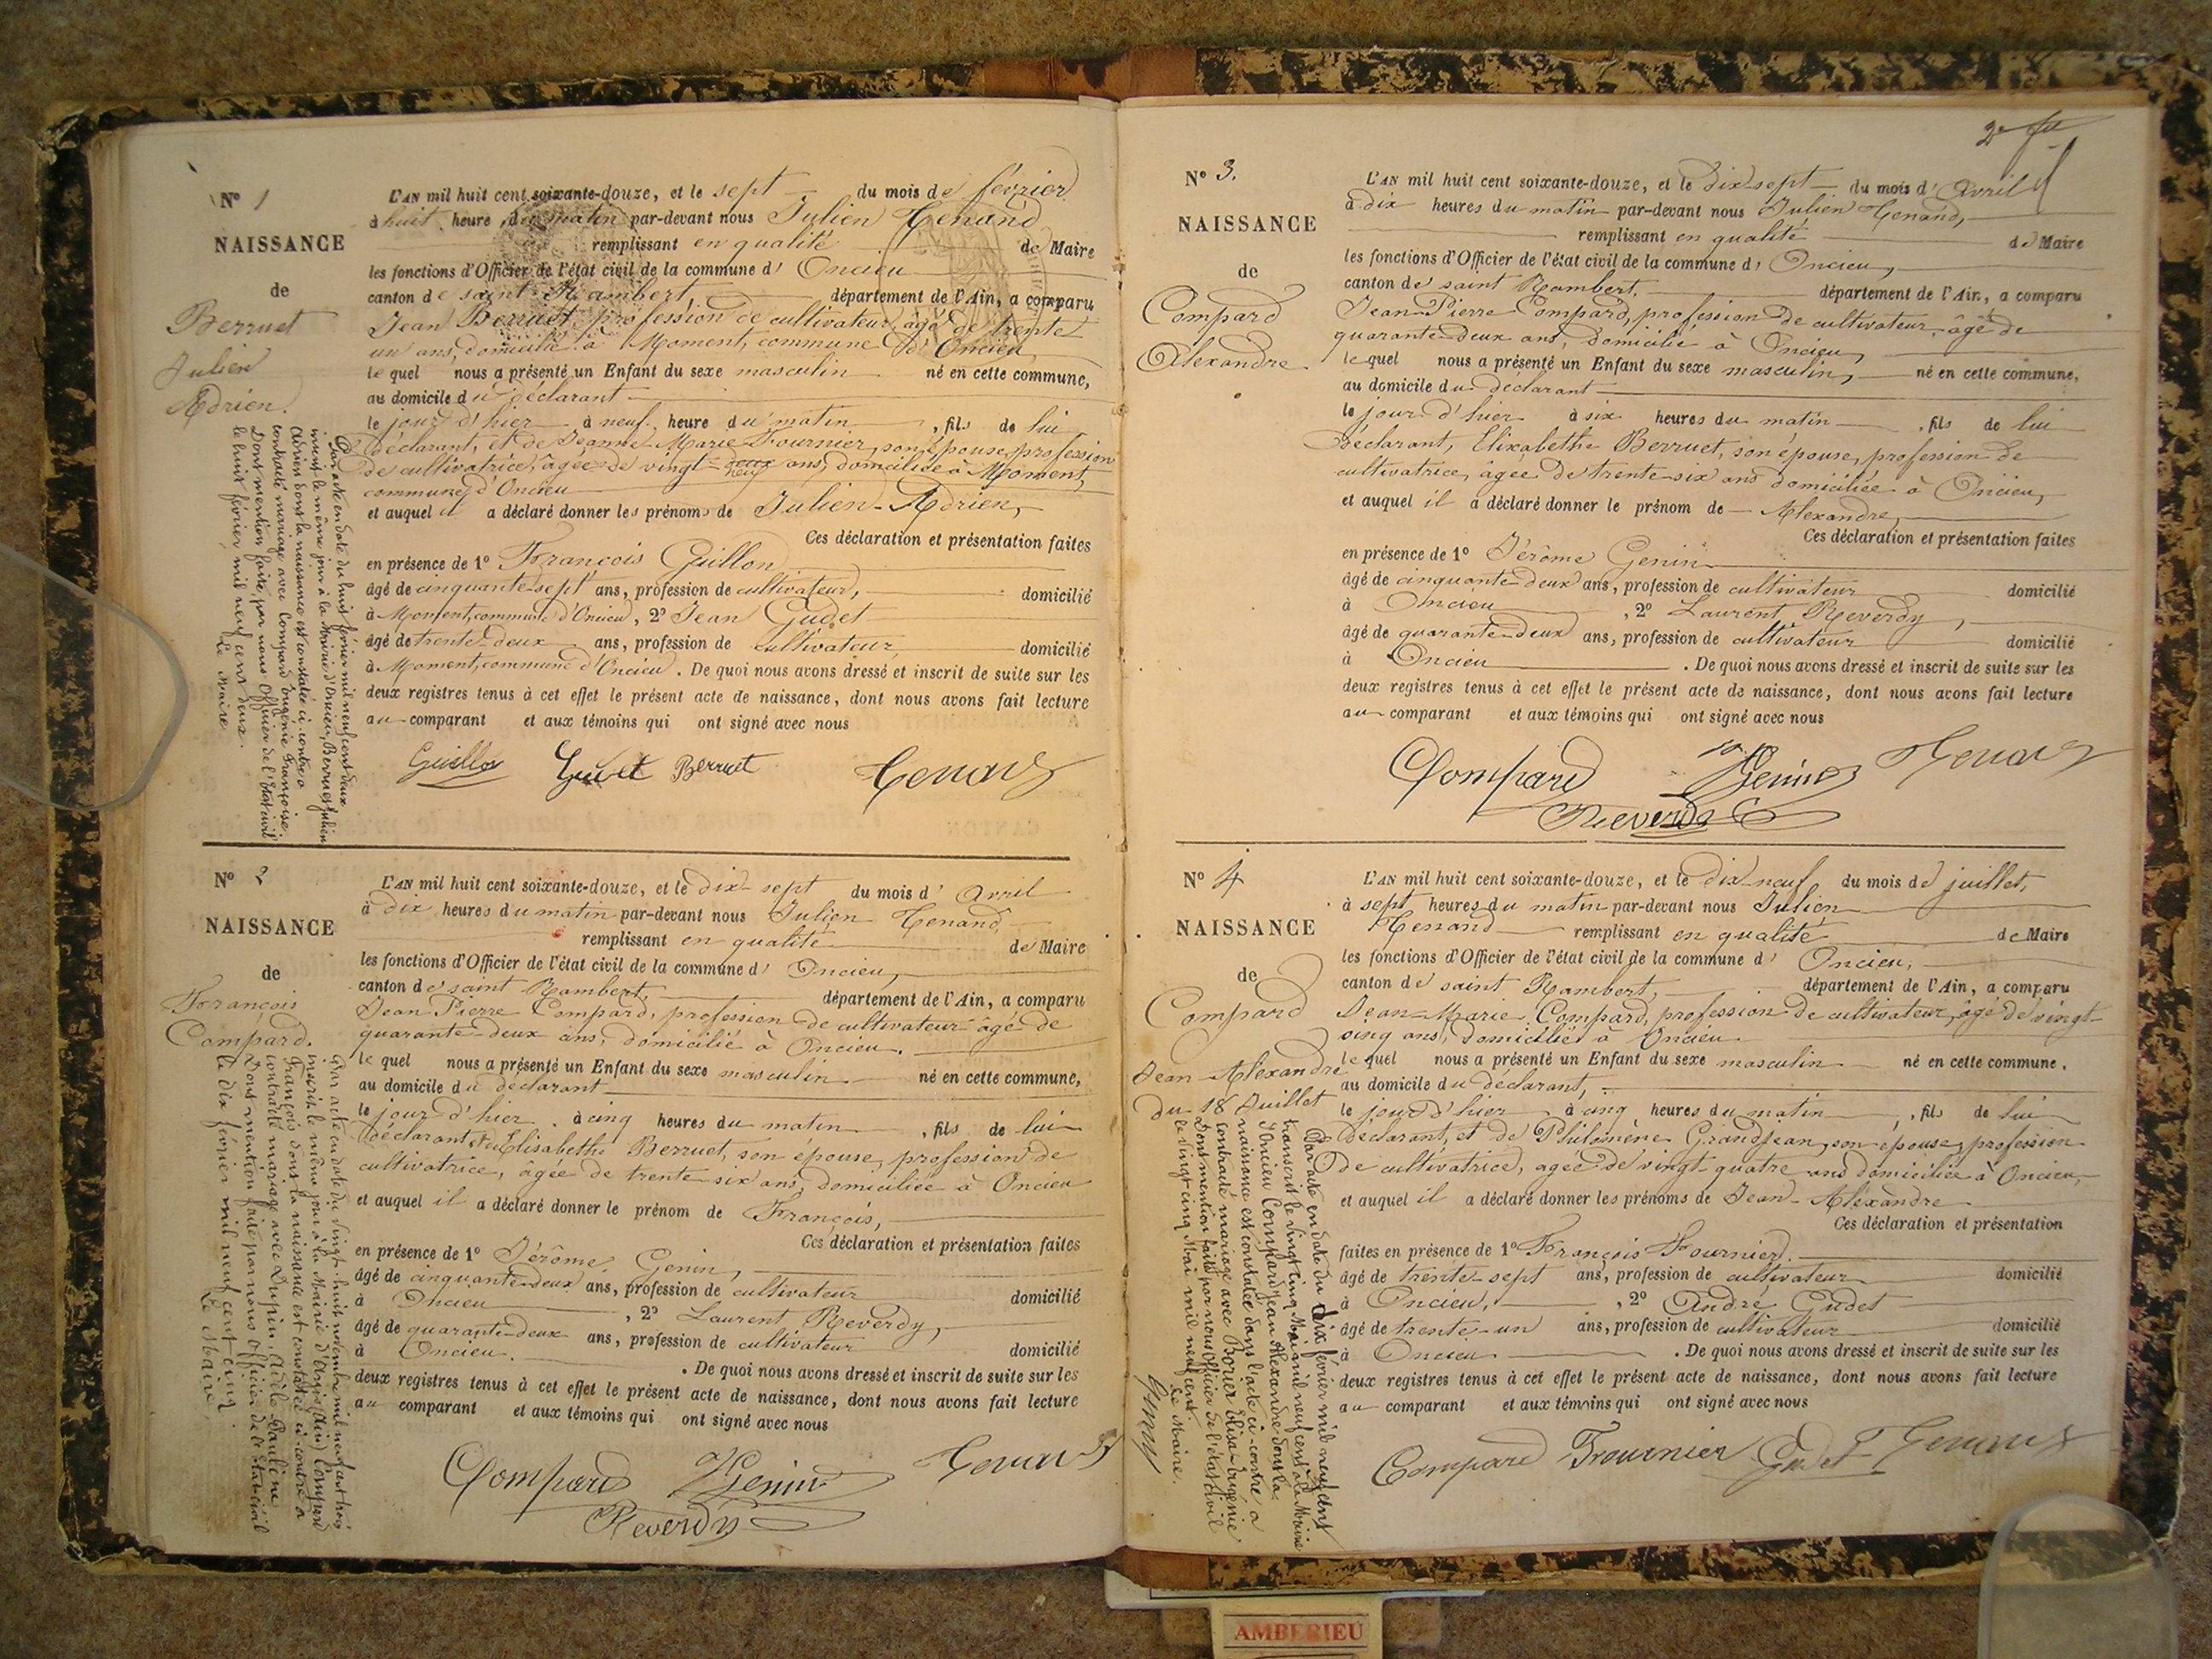 N° 1
NAISSANCE
de
Berruet
Julien
Adrien.
Par acte en date du huit février mil neuf cent deux
inscrit le même jour à la Mairie d'Oncieu, Berruet Julien
Adrien dont la naissance est constatée ci-contre a
contracté mariage avec Compard Eugénie Françoise.
Dont mention faite par nous Officier de l'état civil
le huit février mil neuf cent deux.
Le Maire
L'AN mil huit cent soixante-douze, et le sept du mois de février
à huit heure du matin par-devant nous Julien Tenand
remplissant en qualité de Maire
les fonctions d'Officier de l'état civil de la commune d' Oncieu
canton de saint Rambert département de l'Ain, a comparu
Jean Berruet, profession de cultivateur, âgé de trente
un ans, domicilié à Moment, commune d'Oncieu
le quel nous a présenté un Enfant du sexe masculin né en cette commune,
au domicile du déclarant
le jour d'hier à neuf heure du matin, fils de lui
déclarant, et de Jeanne-Marie Fournier, son épouse, profession
de cultivatrice, âgée de vingt-neuf ans, domiciliée à Moment,
commune d'Oncieu
et auquel il a déclaré donner les prénoms de Julien-Adrien,
Ces déclaration et présentation faites
en présence de 1° François Guillon
âgé de cinquante-sept ans, profession de cultivateur, domicilié
à Moment, commune d'Oncieu, 2° Jean Gudet
âgé de trente-deux ans, profession de cultivateur, domicilié
à Moment, commune d'Oncieu. De quoi nous avons dressé et inscrit de suite sur les
deux registres tenus à cet effet le présent acte de naissance, dont nous avons fait lecture
au comparant et aux témoins qui ont signé avec nous
Guillon Gudet Berruet Tenand
N° 2
NAISSANCE
de
François
Compard.
Par acte en date du vingt-huit novembre mil neuf cent trois
inscrit le même jour à la Mairie d'Argis (Ain) Compard
François dont la naissance est constatée ci-contre a
contracté mariage avec Dupin, Adèle Pauline
Dont mention faite par nous Officier de l'état civil
le dix février mil neuf cent cinq.
Le Maire,
L'AN mil huit cent soixante-douze, et le dix-sept du mois d' avril
à dix heures du matin par-devant nous Julien Tenand,
remplissant en qualité de Maire
les fonctions d'Officier de l'état civil de la commune d' Oncieu,
canton de saint Rambert, département de l'Ain, a comparu
Jean Pierre Compard, profession de cultivateur âgé de
quarante-deux ans, domicilié à Oncieu.
le quel nous a présenté un Enfant du sexe masculin né en cette commune,
au domicile du déclarant
le jour d'hier à cinq heures du matin, fils de lui
déclarant, et de Elisabethe Berruet, son épouse, profession de
cultivatrice, âgée de trente six ans, domiciliée à Oncieu
et auquel il a déclaré donner le prénom de François,
Ces déclaration et présentation faites
en présence de 1° Jérôme Genin,
âgé de cinquante-deux ans, profession de cultivateur domicilié
à Oncieu, 2° Laurent Reverdy,
âgé de quarante-deux ans, profession de cultivateur domicilié
à Oncieu. De quoi nous avons dressé et inscrit de suite sur les
deux registres tenus à cet effet le présent acte de naissance, dont nous avons fait lecture
au comparant et aux témoins qui ont signé avec nous
Compard Genin Tenand
Reverdy
N° 3.
NAISSANCE
de
Compard
Alexandre.
L'AN mil huit cent soixante-douze, et le dix-sept du mois d' Avril
à dix heures du matin par-devant nous Julien Tenand,
remplissant en qualité de Maire
les fonctions d'Officier de l'état civil de la commune d' Oncieu,
canton de saint Rambert, département de l'Ain, a comparu
Jean-Pierre Compard, profession de cultivateur âgé de
quarante-deux ans, domicilié à Oncieu,
le quel nous a présenté un Enfant du sexe masculin, né en cette commune,
au domicile du déclarant
le jour d'hier à six heures du matin, fils de lui
déclarant, Elixabethe Berruet, son épouse, profession de
cultivatrice, âgée de trente-six ans domiciliée à Oncieu,
et auquel il a déclaré donner le prénom de Alexandre,
Ces déclaration et présentation faites
en présence de 1° Jérôme Genin
âgé de cinquante-deux ans, profession de cultivateur domicilié
à Oncieu, 2° Laurent Reverdy,
âgé de quarante-deux ans, profession de cultivateur domicilié
à Oncieu. De quoi nous avons dressé et inscrit de suite sur les
deux registres tenus à cet effet le présent acte de naissance, dont nous avons fait lecture
au comparant et aux témoins qui ont signé avec nous
Compard Genin Tenand
Reverdy
N° 4
NAISSANCE
de
Compard
Jean-Alexandre
du 18 Juillet
Par acte en date du dix février mil neuf cent
transcrit le vingt cinq Mai mil neuf cent à la Mairie
d'Oncieu Compard Jean Alexandre dont la
naissance est constatée dans l'acte ci-contre a
contracté mariage avec Borner Elisa-Eugénie
Dont mention faite par nous Officier de l'état civil
le vingt cinq Mai mil neuf cent
Le Maire.
L'AN mil huit cent soixante-douze, et le dix-neuf du mois de juillet,
à sept heures du matin par-devant nous Julien
Tenand remplissant en qualité de Maire
les fonctions d'Officier de l'état civil de la commune d' Oncieu,
canton de saint Rambert, département de l'Ain, a comparu
Jean-Marie Compard, profession de cultivateur, âgé de vingt-
cinq ans, domicilié à Oncieu
le quel nous a présenté un Enfant du sexe masculin né en cette commune.
au domicile du déclarant,
le jour d'hier à cinq heures du matin, fils de lui
déclarant, et de Philomène Grandjean, son épouse, profession
de cultivatrice, agée de vingt-quatre ans domiciliée à Oncieu,
et auquel il a déclaré donner les prénoms de Jean-Alexandre
Ces déclaration et présentation
faites en présence de 1° François Fournier.
âgé de trente-sept ans, profession de cultivateur domicilié
à Oncieu, 2° André Gudet
âgé de trente-un ans, profession de cultivateur domicilié
à Oncieu. De quoi nous avons dressé et inscrit de suite sur les
deux registres tenus à cet effet le présent acte de naissance, dont nous avons fait lecture
au comparant et aux témoins qui ont signé avec nous
Compard Fournier Gudet Tenand
AMBERIEU